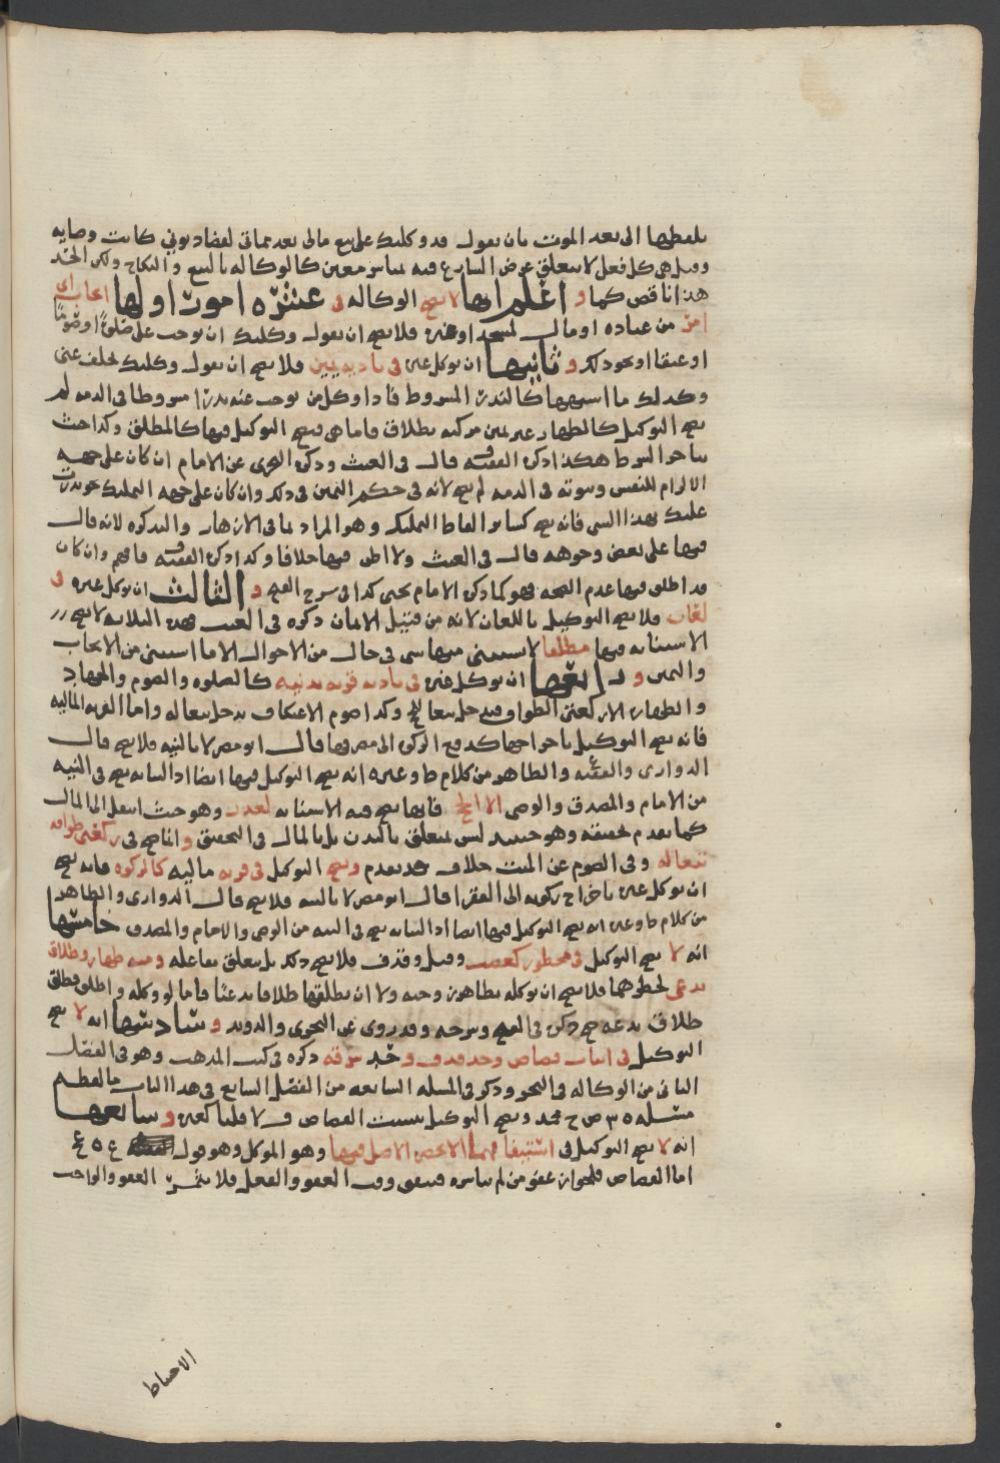 بلفظها الى بعد الموت بان يقول قد وكلتك على بيع مالي بعد مماتي لقضاء ديوني كانت وصايه
وقيل هي كل فعل لا يتعلق غرض الشارع فيه بمباشر معين كالوكاله بالبيع والنكاح ولكن الحد
هذا ناقص كما و اعلم انها لا يصح الوكاله في عشره امور اولها ايجاب اي
امر من عباده او مال لمسجد او غيره فلا يصح ان يقول وكلتك ان توجب علي صلوة او صوما
او عتقا او نحو ذلك و ثانيها ان يوكل غيره في تاديه يمين فلا يصح ان يقول وكلتك تحلف عني
وكذلك ما اشبهها كالنذر المشروط فاذا وكل من يوجب عنه نذرا مشروطا في الذمه لم
يصح التوكيل كالظهار غير يمين مركبه بطلاق فاما هي فيصح التوكيل فيها كالمطلق وكذا حيث
تاخر الشرط هكذا ذكره الفقيه قال في الغيث وذكر المهدي عن الامام ان كان على جهه
الالزام للنفس وثبوته في الذمه لم يصح لانه في حكم اليمين في ذلك وان كان على جهه التمليك نحو نذرت
عليك بهذا الشي فانه يصح كسائر الفاظ التمليك وهو المراد بما في الازهار والتذكره لانه قال
فيها على بعض وجوهه قال في الغيث ولا اظن فيها خلافا وكذا ذكره الفقيه فافهم وان كان
قد اطلق فيها عدم الصحه فهو كما ذكره الامام يحيى كذا في شرح الفتح و الثالث ان يوكل غيره في
لعان فلا يصح التوكيل باللعان لانه من قبيل الايمان ذكره في الغيث فهذه الثلاثه لا يصح
الاستنابه فيها مطلقا لا يستثنى منها شي في حال من الاحوال الا ما استثني من الايجاب
واليمين و رابعها ان يوكل غيره في تاديه قربه بدنيه كالصلوه والصوم والجهاد
والطهاره الا ركعتي الطواف فتدخل تبعا للحج وكذا صوم الاعتكاف يدخل تبعا له واما القربه الماليه
فانه يصح التوكيل باخراجها كدفع الزكوه الى مصرفها قال ابو مضر لا بالنيه فلا يصح قال
الدواري والفقيه والظاهر من كلام ط وغيره انه يصح التوكيل فيها ايضا اذ النيابه يصح في النيه
من الامام والمصدق والوصي الا الحج فانها يصح فيه الاستنابه لعذر وهو حيث انتقل الى المال
كما تقدم تحقيقه وهو حينئذ ليس متعلق بالبدن بل بالمال في التحقيق وانما صح في ركعتي طوافه
تبعا له وفي الصوم عن الميت خلاف قد تقدم ويصح التوكيل في قربه ماليه كالزكوه فانه يصح
ان يوكل غيره باخراج زكوته الى الفقرا قال ابو مضر لا بالنيه فلا يصح قال الدواري والظاهر
من كلام ط وغيره انه يصح التوكيل فيها ايضا اذ النيابه يصح في النيه من الوصي والامام والمصدق خامسها
انه لا يصح التوكيل في محظور كغصب وقتل وقذف فلا يصح ذلك بل يتعلق بفاعله ومنه ظهار وطلاق
بدعي لحظرهما فلا يصح ان نوكله بظاهره زوجته ولا ان يطلقها طلاقا بدعيا فاما لو وكله واطلق فطلق
طلاق بدعه صح ذكره في الفتح وشرحه وقد روي عن النجري والدويد و سادسها انه لا يصح
التوكيل في اثبات قصاص وحد قذف وحد سرقه ذكره في كتب المذهب وهو في الفصل
الثاني من الوكاله في البحر وذكر في المسله السابعه من الفصل السابع في هذا الباب ما لفظه
مسله ٥ ص ح محمد ويصح التوكيل بتثبيت القصاص ف لا قلنا كغيره و سابعها
انه لا يصح التوكيل في استيفا فيهما الا بحضره الاصل فيها وهو الموكل وهو قول ع ٥ ع
اما القصاص فلجواز عفو من لم يباشره فيبقى وقت العفو والفعل فلا يتميز العفو والواجب
الاحتياط